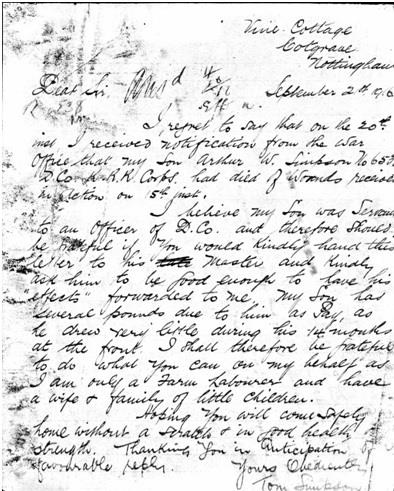 Vine Cottage
Cotgrave
Nottingham
Dear Sir. Ansd
September 2th 1916
I regret to say that on the 20th
inst I received notification from the War
Office that my Son Arthur W. Simpson No 650
D.Co K.R.R Corps, had died of Wounds received
in Action on 15th inst.
I believe my Son was Servant
to an Officer of D.Co. and therefore Should
be grateful if You would Kindly hand this
letter to his Master and Kindly
ask him to be good enough to have his
effects" forwarded to me, my Son has
several pounds due to him as Pay, as
he drew very little during his 14 months
at the front. I shall therefore be grateful
to do what you can on my behalf as
I am only a Farm Labourer and have
a wife & family of little children.
Hoping You will come Safely
home without a Scratch & in good health &
strength. Thanking You in Anticipation of
favourable reply.
Yours Obediently
Tom Simpson